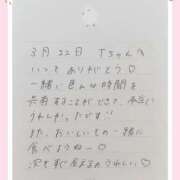 3月22日 Tちゃんへ
いつもありがとう♡
一緒に色んな時間を
共有することができて、本当に
うれしかったです!!
また、おいしいもの一緒に
食べようねー♡
```